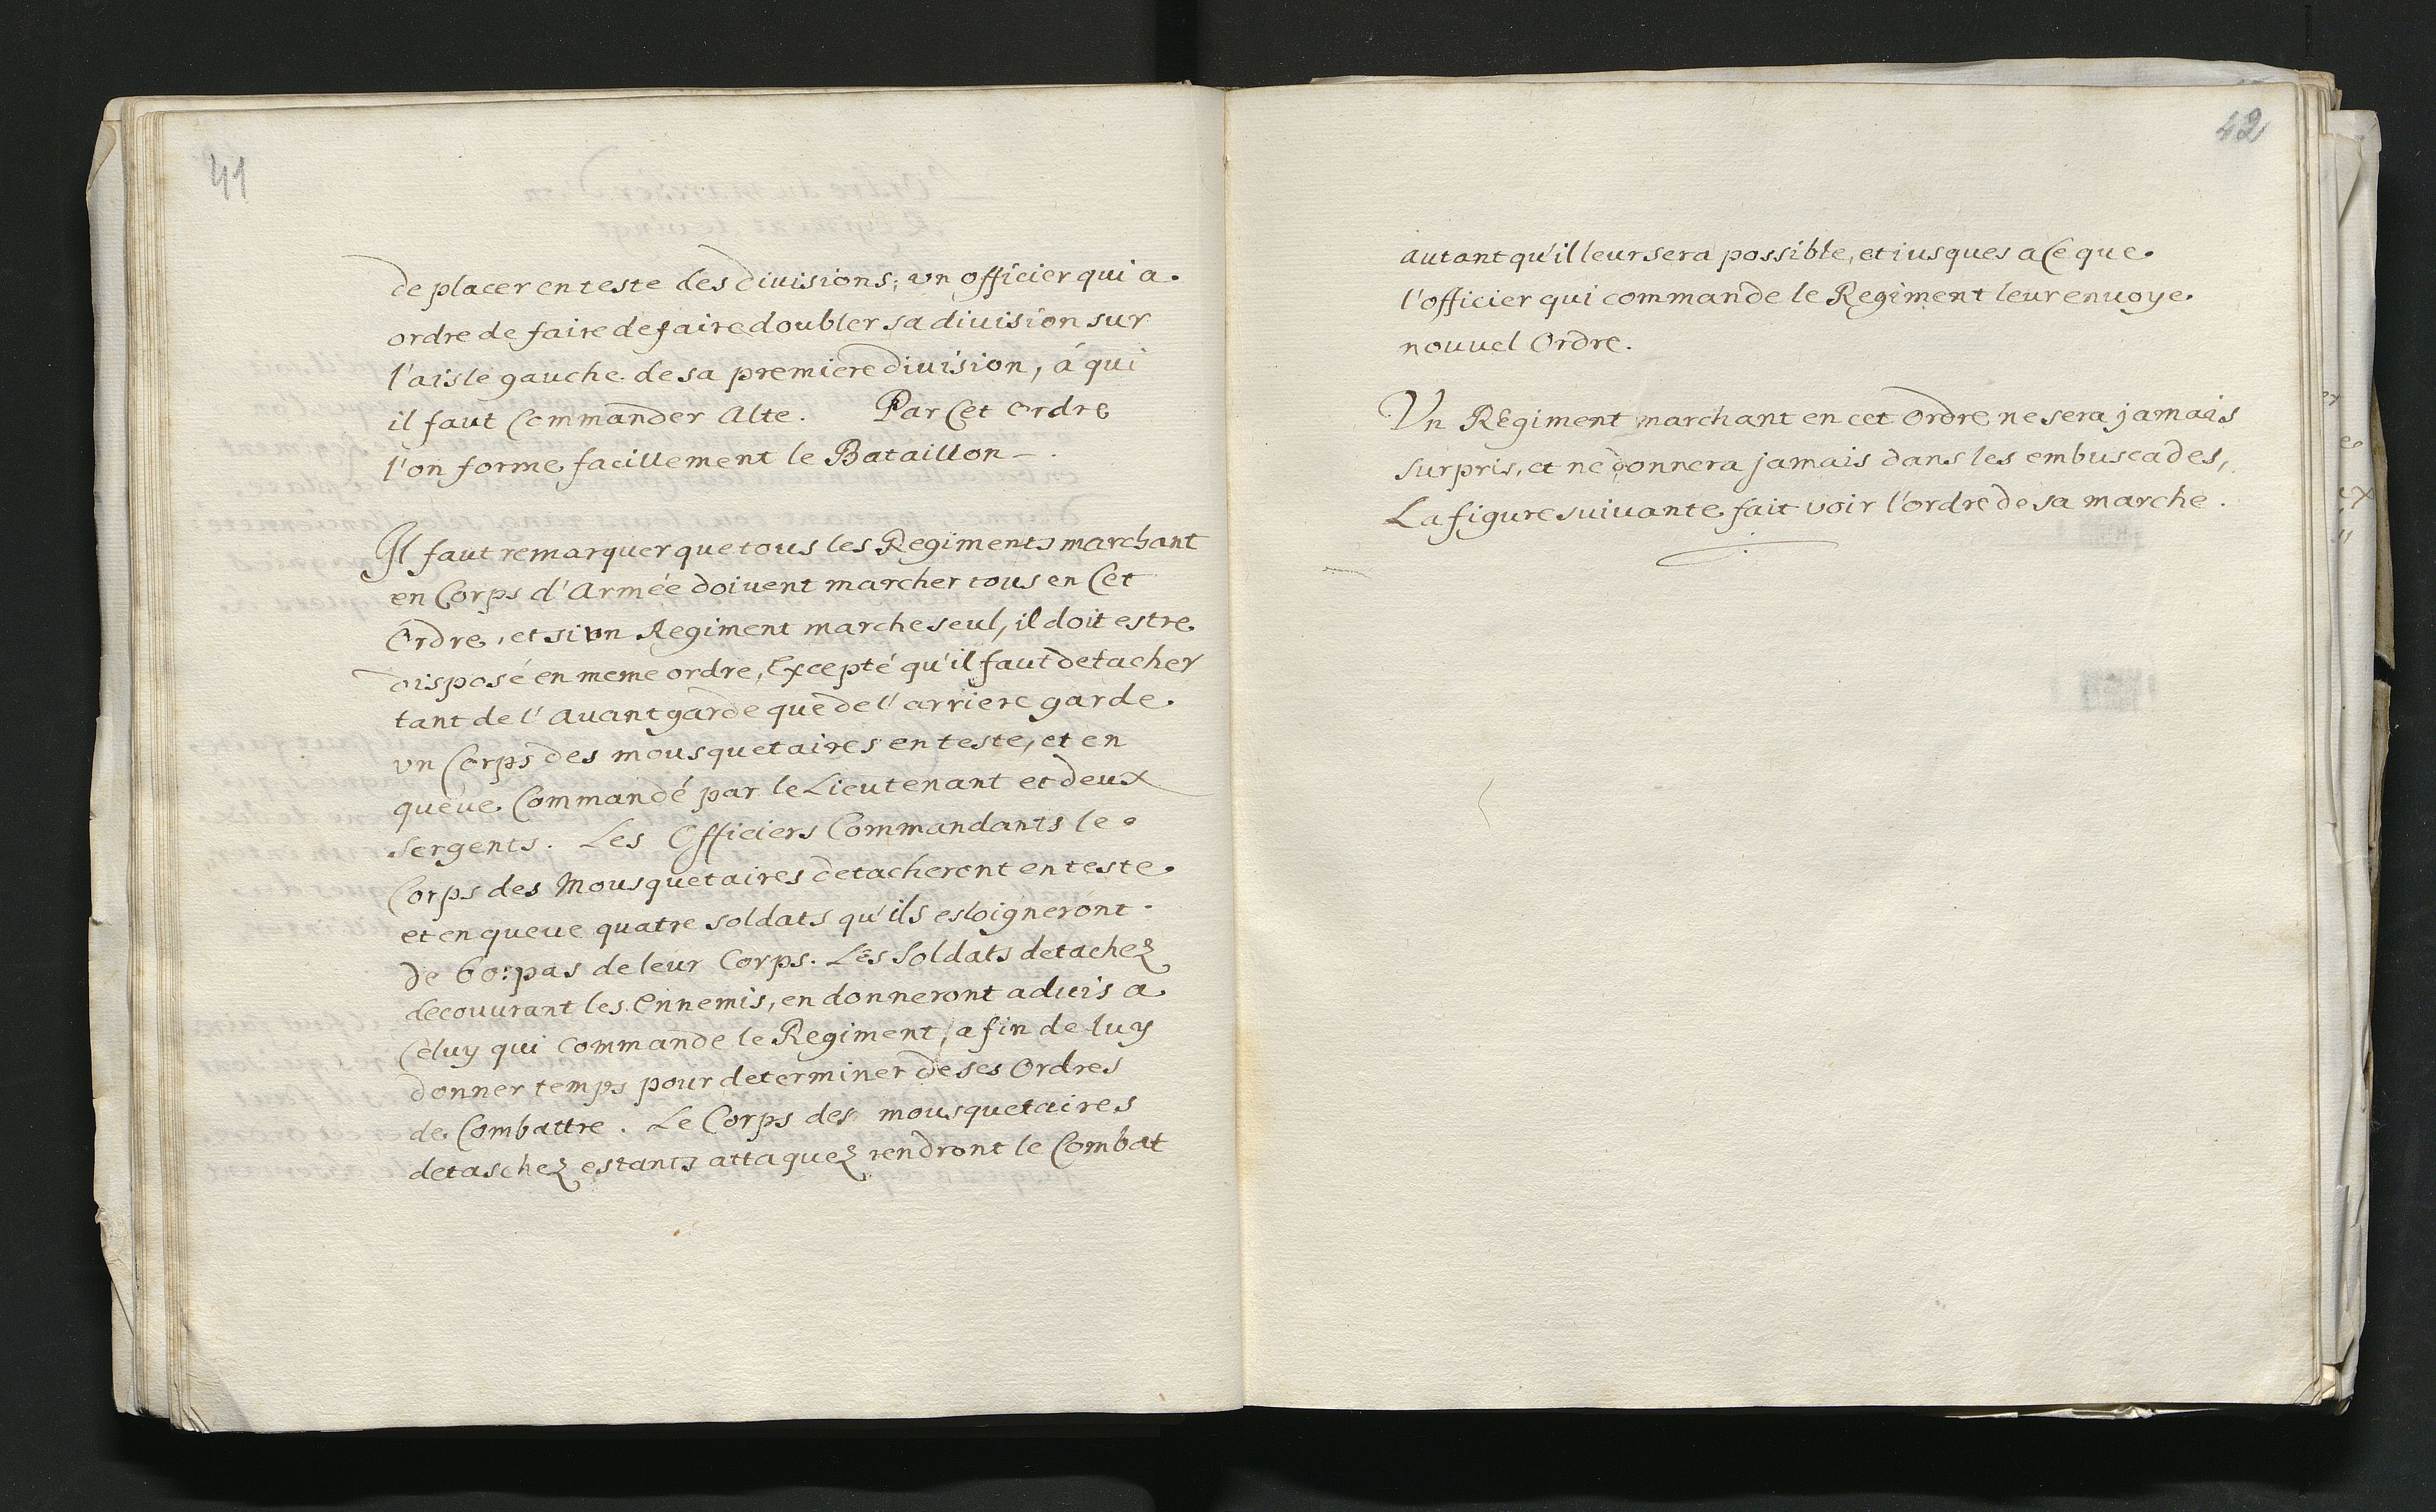 41
de placer en teste des divisions; un officier qui a
ordre de faire de faire doubler sa diuision sur
l'aisle gauche de sa premiere diuision, á qui
il faut Commander Alte. Par Cet ordre
l'on forme facillement le Bataillon –.
Il faut remarquer que tous les Regiments marchant
en Corps d'Armée doiuent marcher tous en Cet
Ordre, et si vn Regiment marche seul, il doit estre
disposé en meme ordre, Excepté qu'il faut detacher
tant de l'Auantgarde que de l'arriere garde
vn Corps des mousquetaires en teste, et en
queue Commandé par le Lieutenant et deux
Sergents. Les Officiers Commandants le
Corps des Mousquetaires detacheront en teste
et en queue quatre soldats qu'ils esloigneront
de 60: pas de leur Corps. Les Soldats detachez
decouurant les Ennemis, en donneront aduis a
Celuy qui commande le Regiment, afin de luy
donner temps pour determiner de ses Ordres
de Combattre. Le Corps des mousquetaires
detaschez estants attaquez rendront le Combat
42
autant qu'il leur sera possible, et iusques a Ce que
l'officier qui commande le Regiment leur enuoye
nouuel Ordre.
Vn Regiment marchant en cet Ordre ne sera jamais
surpris, et ne donnera jamais dans les embuscades,
La figure suiuante fait voir l'ordre de sa marche.